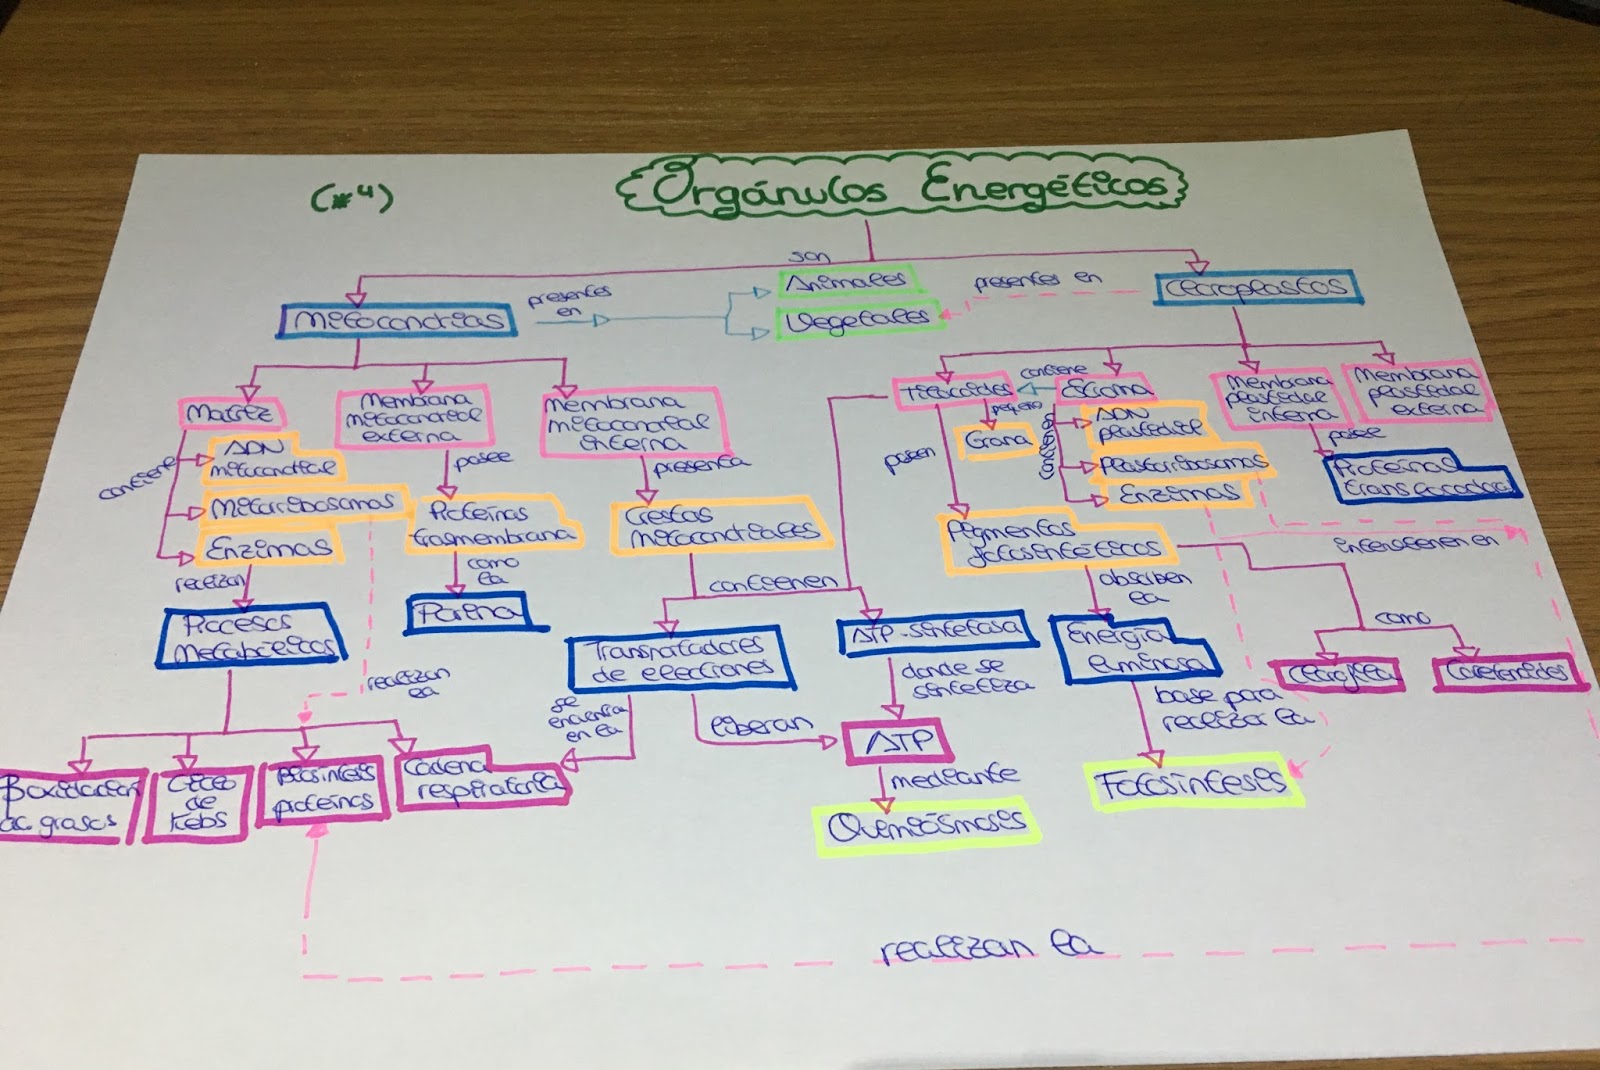 (*4)
Orgánulos Energéticos
son
Mitocondrias
presentes
en
Animales
Vegetales
presentes en
Cloroplastos
Matriz
Membrana
mitocondrial
externa
Membrana
mitocondrial
interna
Tilacoides
contiene
Estroma
Membrana
plastidial
interna
Membrana
plastidial
externa
contiene
ADN
mitocondrial
Mitorribosomas
Enzimas
posee
Proteínas
trasmembrana
presenta
Crestas
mitocondriales
poseen
Grana
contiene
ADN
plastidial
Plastorribosomas
Enzimas
posee
Proteínas
Pigmentos
fotosintéticos
intervienen en
realizan
Procesos
Metabólicos
como
la
Porina
contienen
Transportadores
de elecciones
ATP-sintetasa
absorben
la
Energía
luminosa
como
Clorofila
Carotenoides
realizan
la
se
encuentra
en la
liberan
donde se
sintetiza
ATP
base para
realizar la
B oxidación
de grasas
Ciclo
de
Krebs
proteínas
Cadena
respiratoria
mediante
Quimiósmosis
Fotosíntesis
realizan la